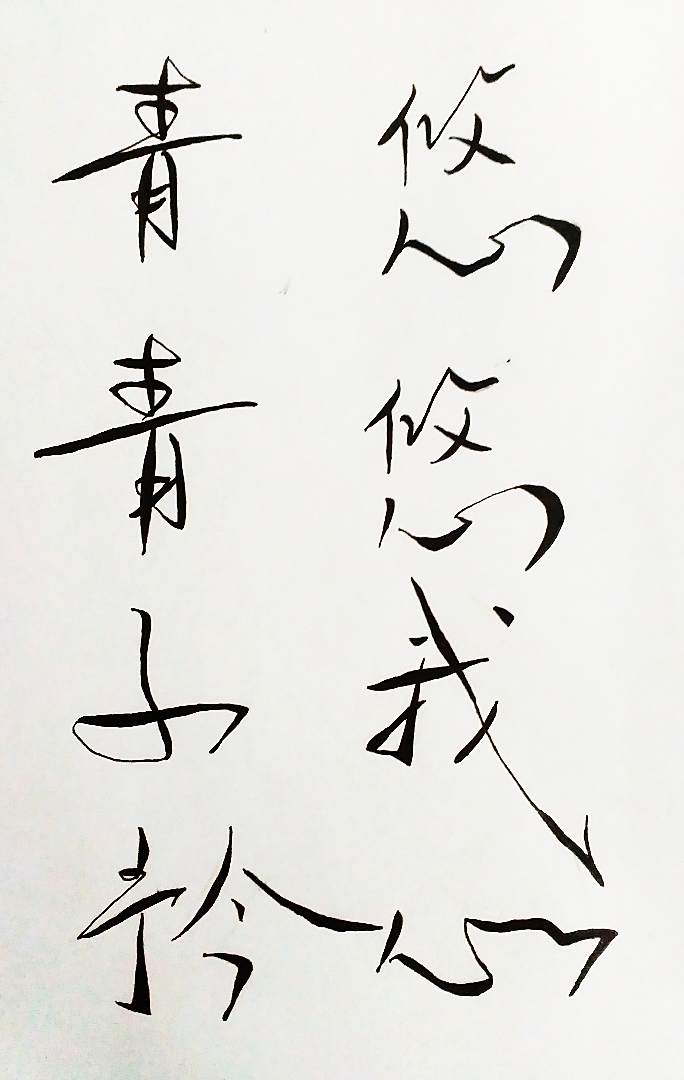 青青子衿
悠悠我心